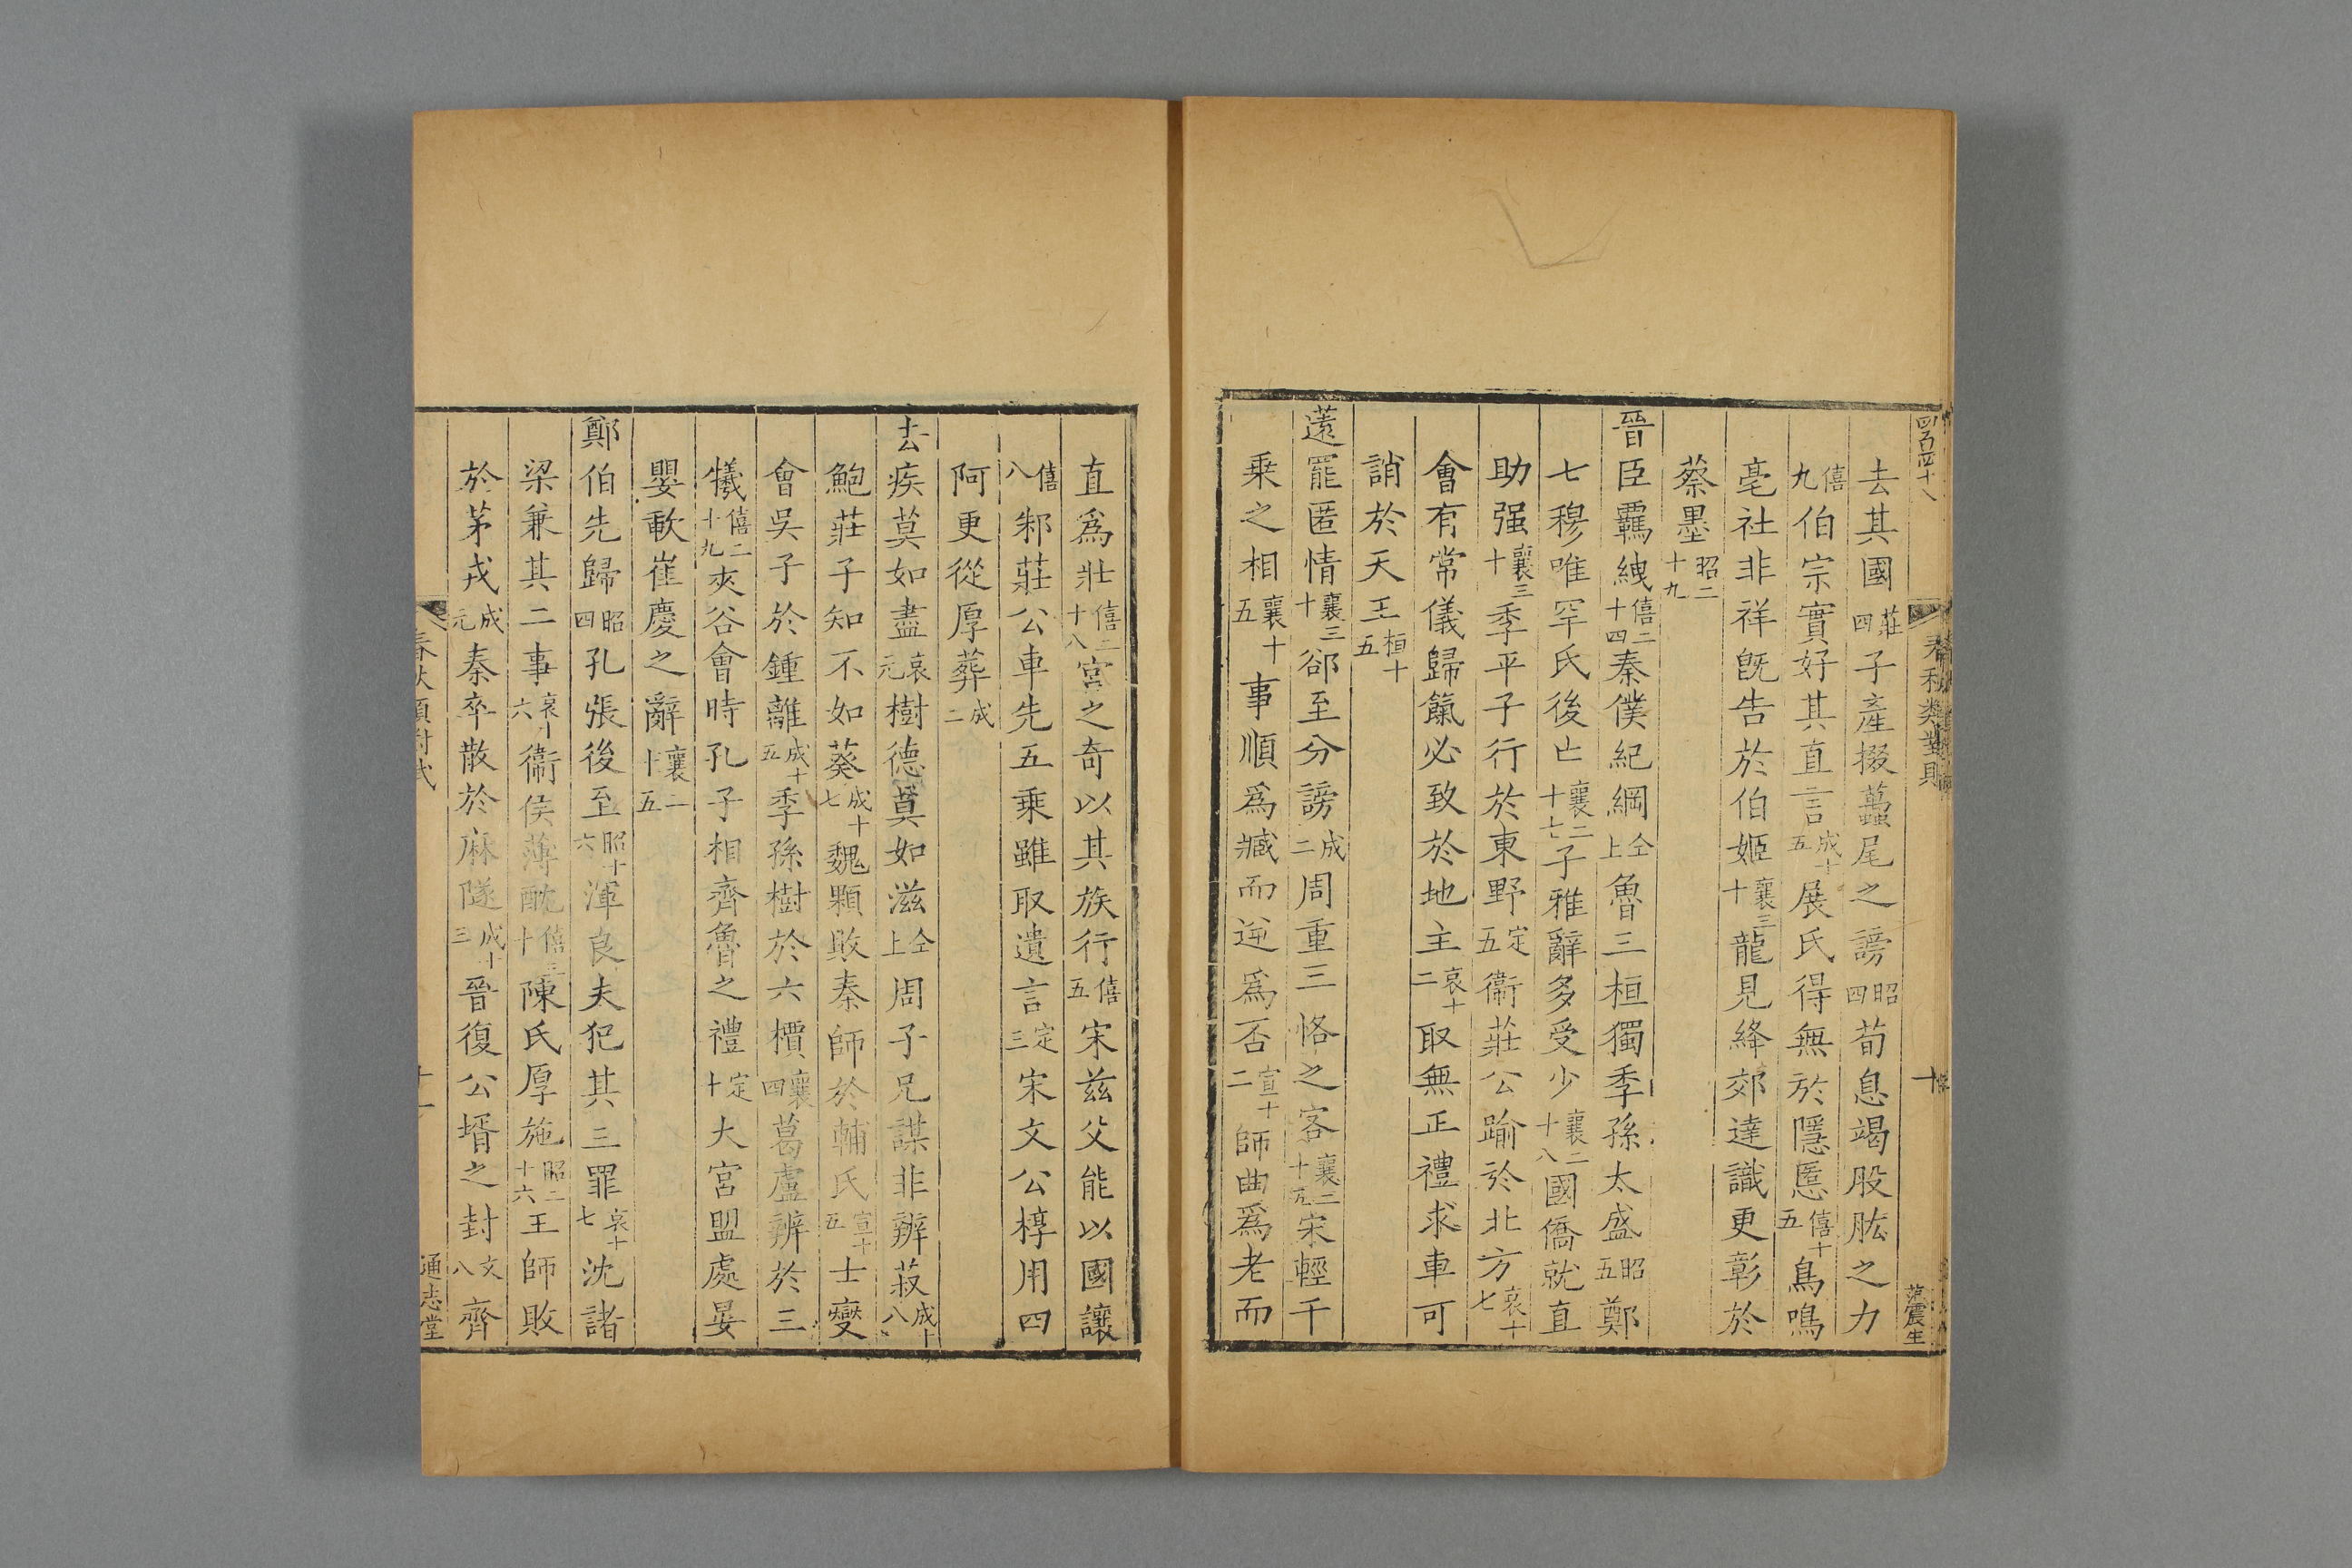 四百四十八
春秋類對賦
十
范震生
去其國莊四子產掇蠆尾之謗昭四荀息竭股肱之力
僖九伯宗實好其直言成十五展氏得無於隱慝僖十五鳥鳴
亳社非祥旣告於伯姬襄三十龍見絳郊達識更彰於
蔡墨昭二十九
晉臣羈絏僖二十四秦僕紀綱仝上魯三桓獨季孫太盛昭五鄭
七穆唯罕氏後亡襄二十七子雅辭多受少襄二十八國僑就直
助强襄三十季平子行於東野定五衞莊公踰於北方哀十七
會有常儀歸餼必致於地主哀十二取無正禮求車可
誚於天王桓十五
薳罷匿情襄三十郤至分謗成二周重三恪之客襄二十五宋輕千
乗之相襄十五事順爲臧而逆爲否宣十二師曲爲老而
直爲壯僖二十八宮之奇以其族行僖五宋兹父能以國讓
僖八邾莊公車先五乘雖取遺言定三宋文公椁用四
阿更從厚葬成二
去疾莫如盡哀元樹德莫如滋仝上周子兄謀非辨菽成十八
鮑莊子知不如葵成十七魏顆敗秦師於輔氏宣十五士燮
會吳子於鍾離成十五季孫樹於六檟襄四葛盧辨於三
犧僖二十九夾谷會時孔子相齊魯之禮定十大宮盟處晏
嬰歃崔慶之辭襄二十五
鄭伯先歸昭四孔張後至昭十六渾良夫犯其三罪哀十七沈諸
梁兼其二事哀十六衞侯薄酖僖三十陳氏厚施昭二十六王師敗
於茅戎成元秦卒散於麻隧成十三晉復公壻之封文八齊
春秋類對賦
十一
通志堂